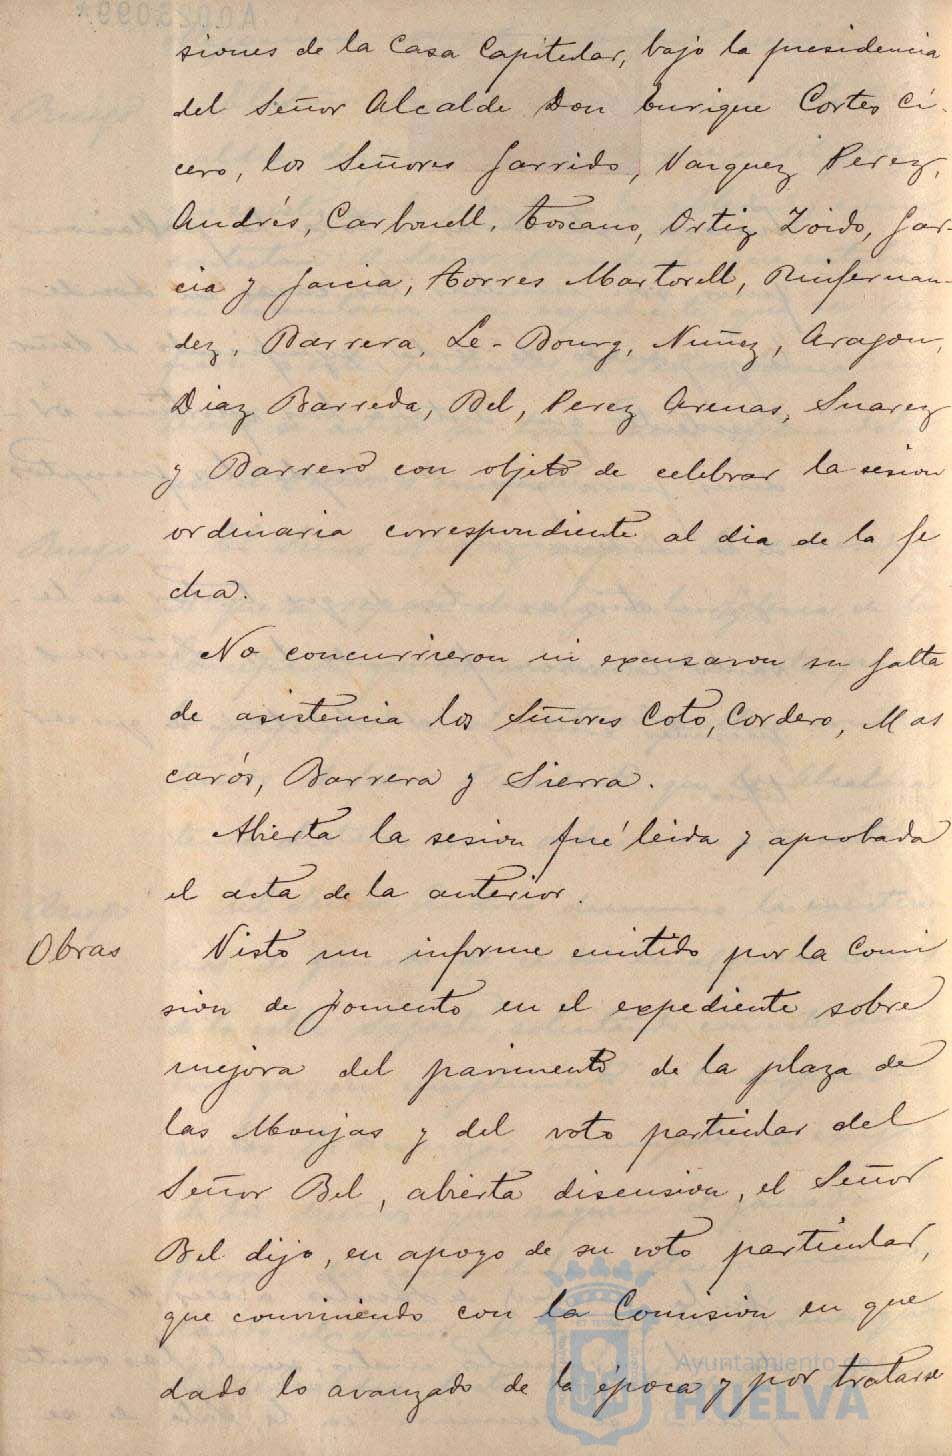 siones de la Casa Capitular, bajo la presidencia
del Señor Alcalde Don Enrique Cortes Cí-
cero, los Señores Garrido, Vazquez Perez,
Andrés, Carbonell, Toscano, Ortiz Zoido, Gar-
cia y Garcia, Torres Martorell, Ruifernan-
dez, Barrera, Le-Bourg, Nuñez, Aragon,
Diaz Barreda, Bel, Perez Arenas, Suarez
y Barrero con objeto de celebrar la sesion
ordinaria correspondiente al dia de la fe
cha.
No concurrieron ni excusaron su falta
de asistencia los Señores Coto, Cordero, Mas
carós, Barrera y Sierra.
Abierta la sesion fué leida y aprobada
el acta de la anterior.
Obras
Visto un informe emitido por la Comi
sion de Fomento en el expediente sobre
mejora del pavimento de la plaza de
las Monjas y del voto particular del
Señor Bel, abierta discusion, el Señor
Bel dijo, en apoyo de su voto particular,
que conviniendo con la Comision en que
dado lo avanzado de la época y por tratarse
Ayuntamiento de
HUELVA